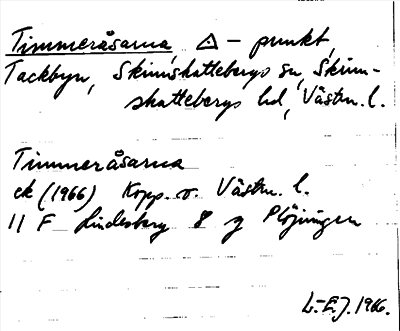 Timmeråsarna, △ - punkt,
Tackbyn, Skinnskattebergs sn, Skinn-
skattebergs hd, Västm. l.
Timmeråsarna
ek (1966) Kopp. o. Västm. l.
11 F Lindesberg 8 g Plöjningen
L-E.J. 1966.